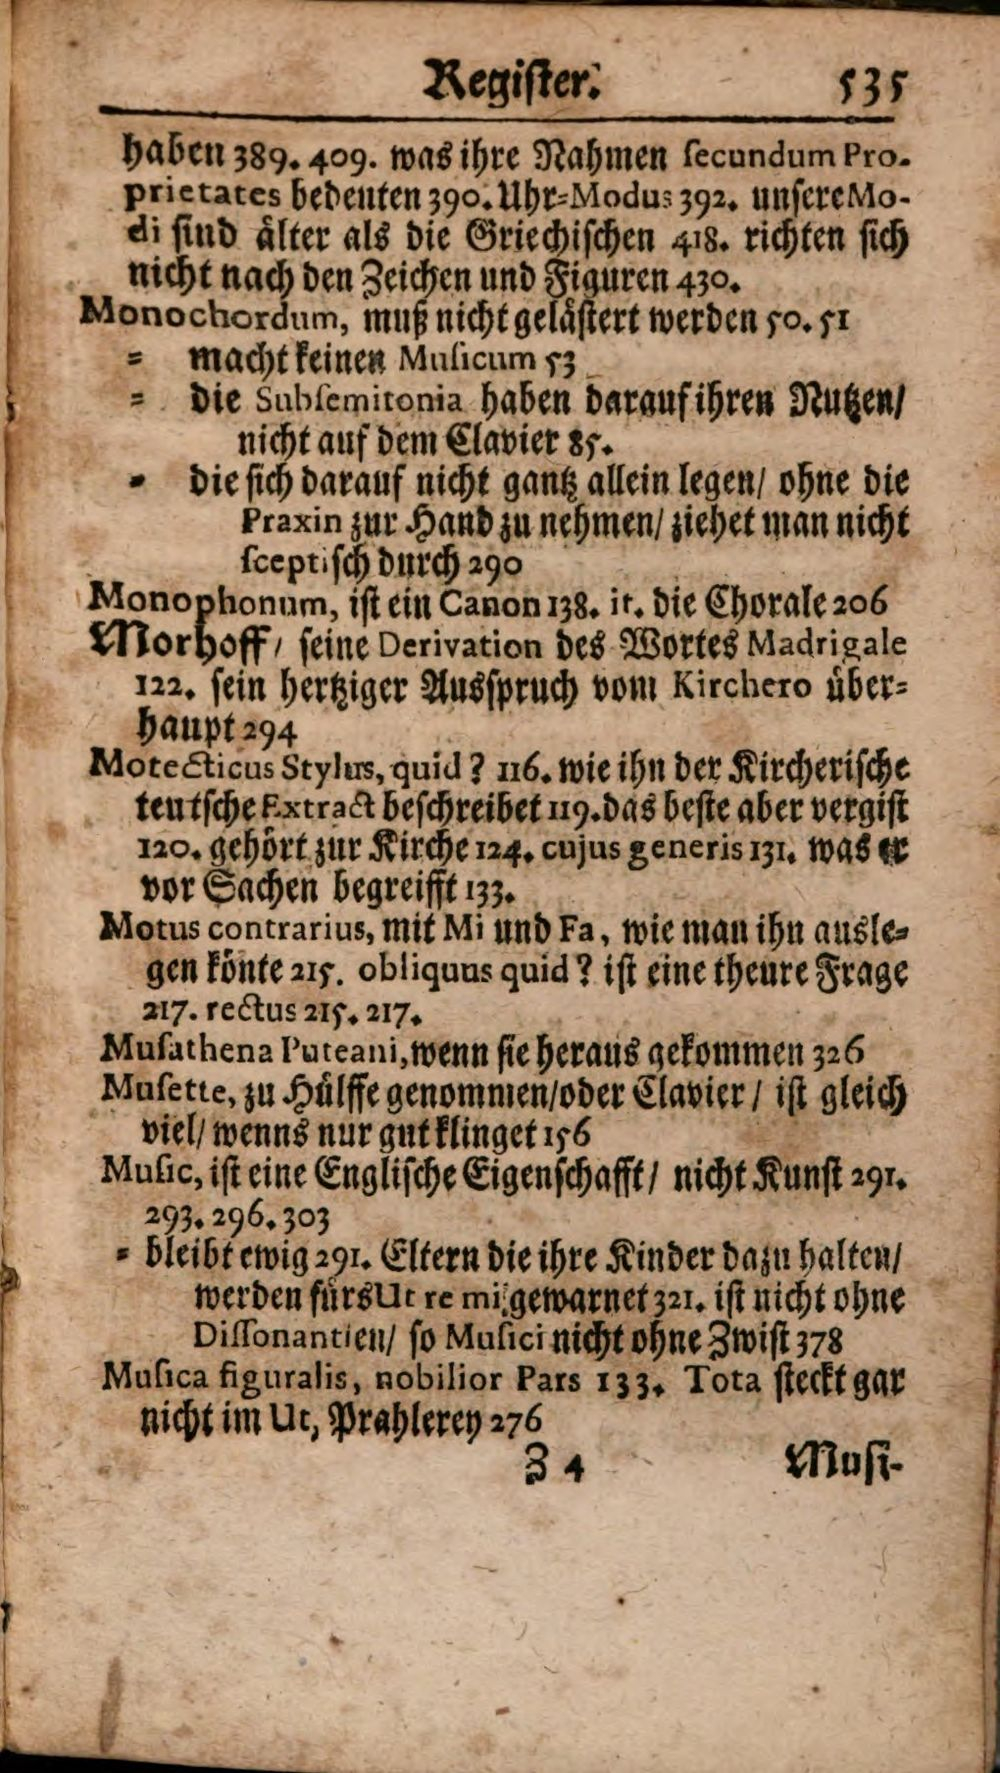 Register. 535
haben 389. 409. was ihre Nahmen ſecundum Pro-
prietates bedeuten 390. Uhr-Modus 392. unſere Mo-
di ſind älter als die Griechiſchen 418. richten ſich
nicht nach den Zeichen und Figuren 430.
Monochordum, muß nicht geläſtert werden 50. 51
= macht keinen Muſicum 53
= die Subſemitonia haben darauf ihren Nutzen/
nicht auf dem Clavier 85.
= die ſich darauf nicht gantz allein legen/ ohne die
Praxin zur Hand zu nehmen/ ziehet man nicht
ſceptiſch durch 290
Monophonum, iſt ein Canon 138. it. die Chorale 206
Morhoff/ ſeine Derivation des Wortes Madrigale
122. ſein hertziger Ausſpruch vom Kirchero über=
haupt 294
Motecticus Stylus, quid? 116. wie ihn der Kircheriſche
teutſche Extract beſchreibet 119. das beſte aber vergiſt
120. gehört zur Kirche 124. cujus generis 131. was er
vor Sachen begreifft 133.
Motus contrarius, mit Mi und Fa, wie man ihn ausle=
gen könte 215. obliquus quid? iſt eine theure Frage
217. rectus 215. 217.
Muſathena Puteani, wenn ſie heraus gekommen 326
Muſette, zu Hülffe genommen/ oder Clavier/ iſt gleich
viel/ wenns nur gut klinget 156
Muſic, iſt eine Engliſche Eigenſchafft/ nicht Kunſt 291.
293. 296. 303
= bleibt ewig 291. Eltern die ihre Kinder dazu halten/
werden fürs Ut re mi gewarnet 321. iſt nicht ohne
Diſſonantien/ ſo Muſici nicht ohne Zwiſt 378
Muſica figuralis, nobilior Pars 133. Tota ſteckt gar
nicht im Ut, Prahlerey 276
Z 4 Muſi-